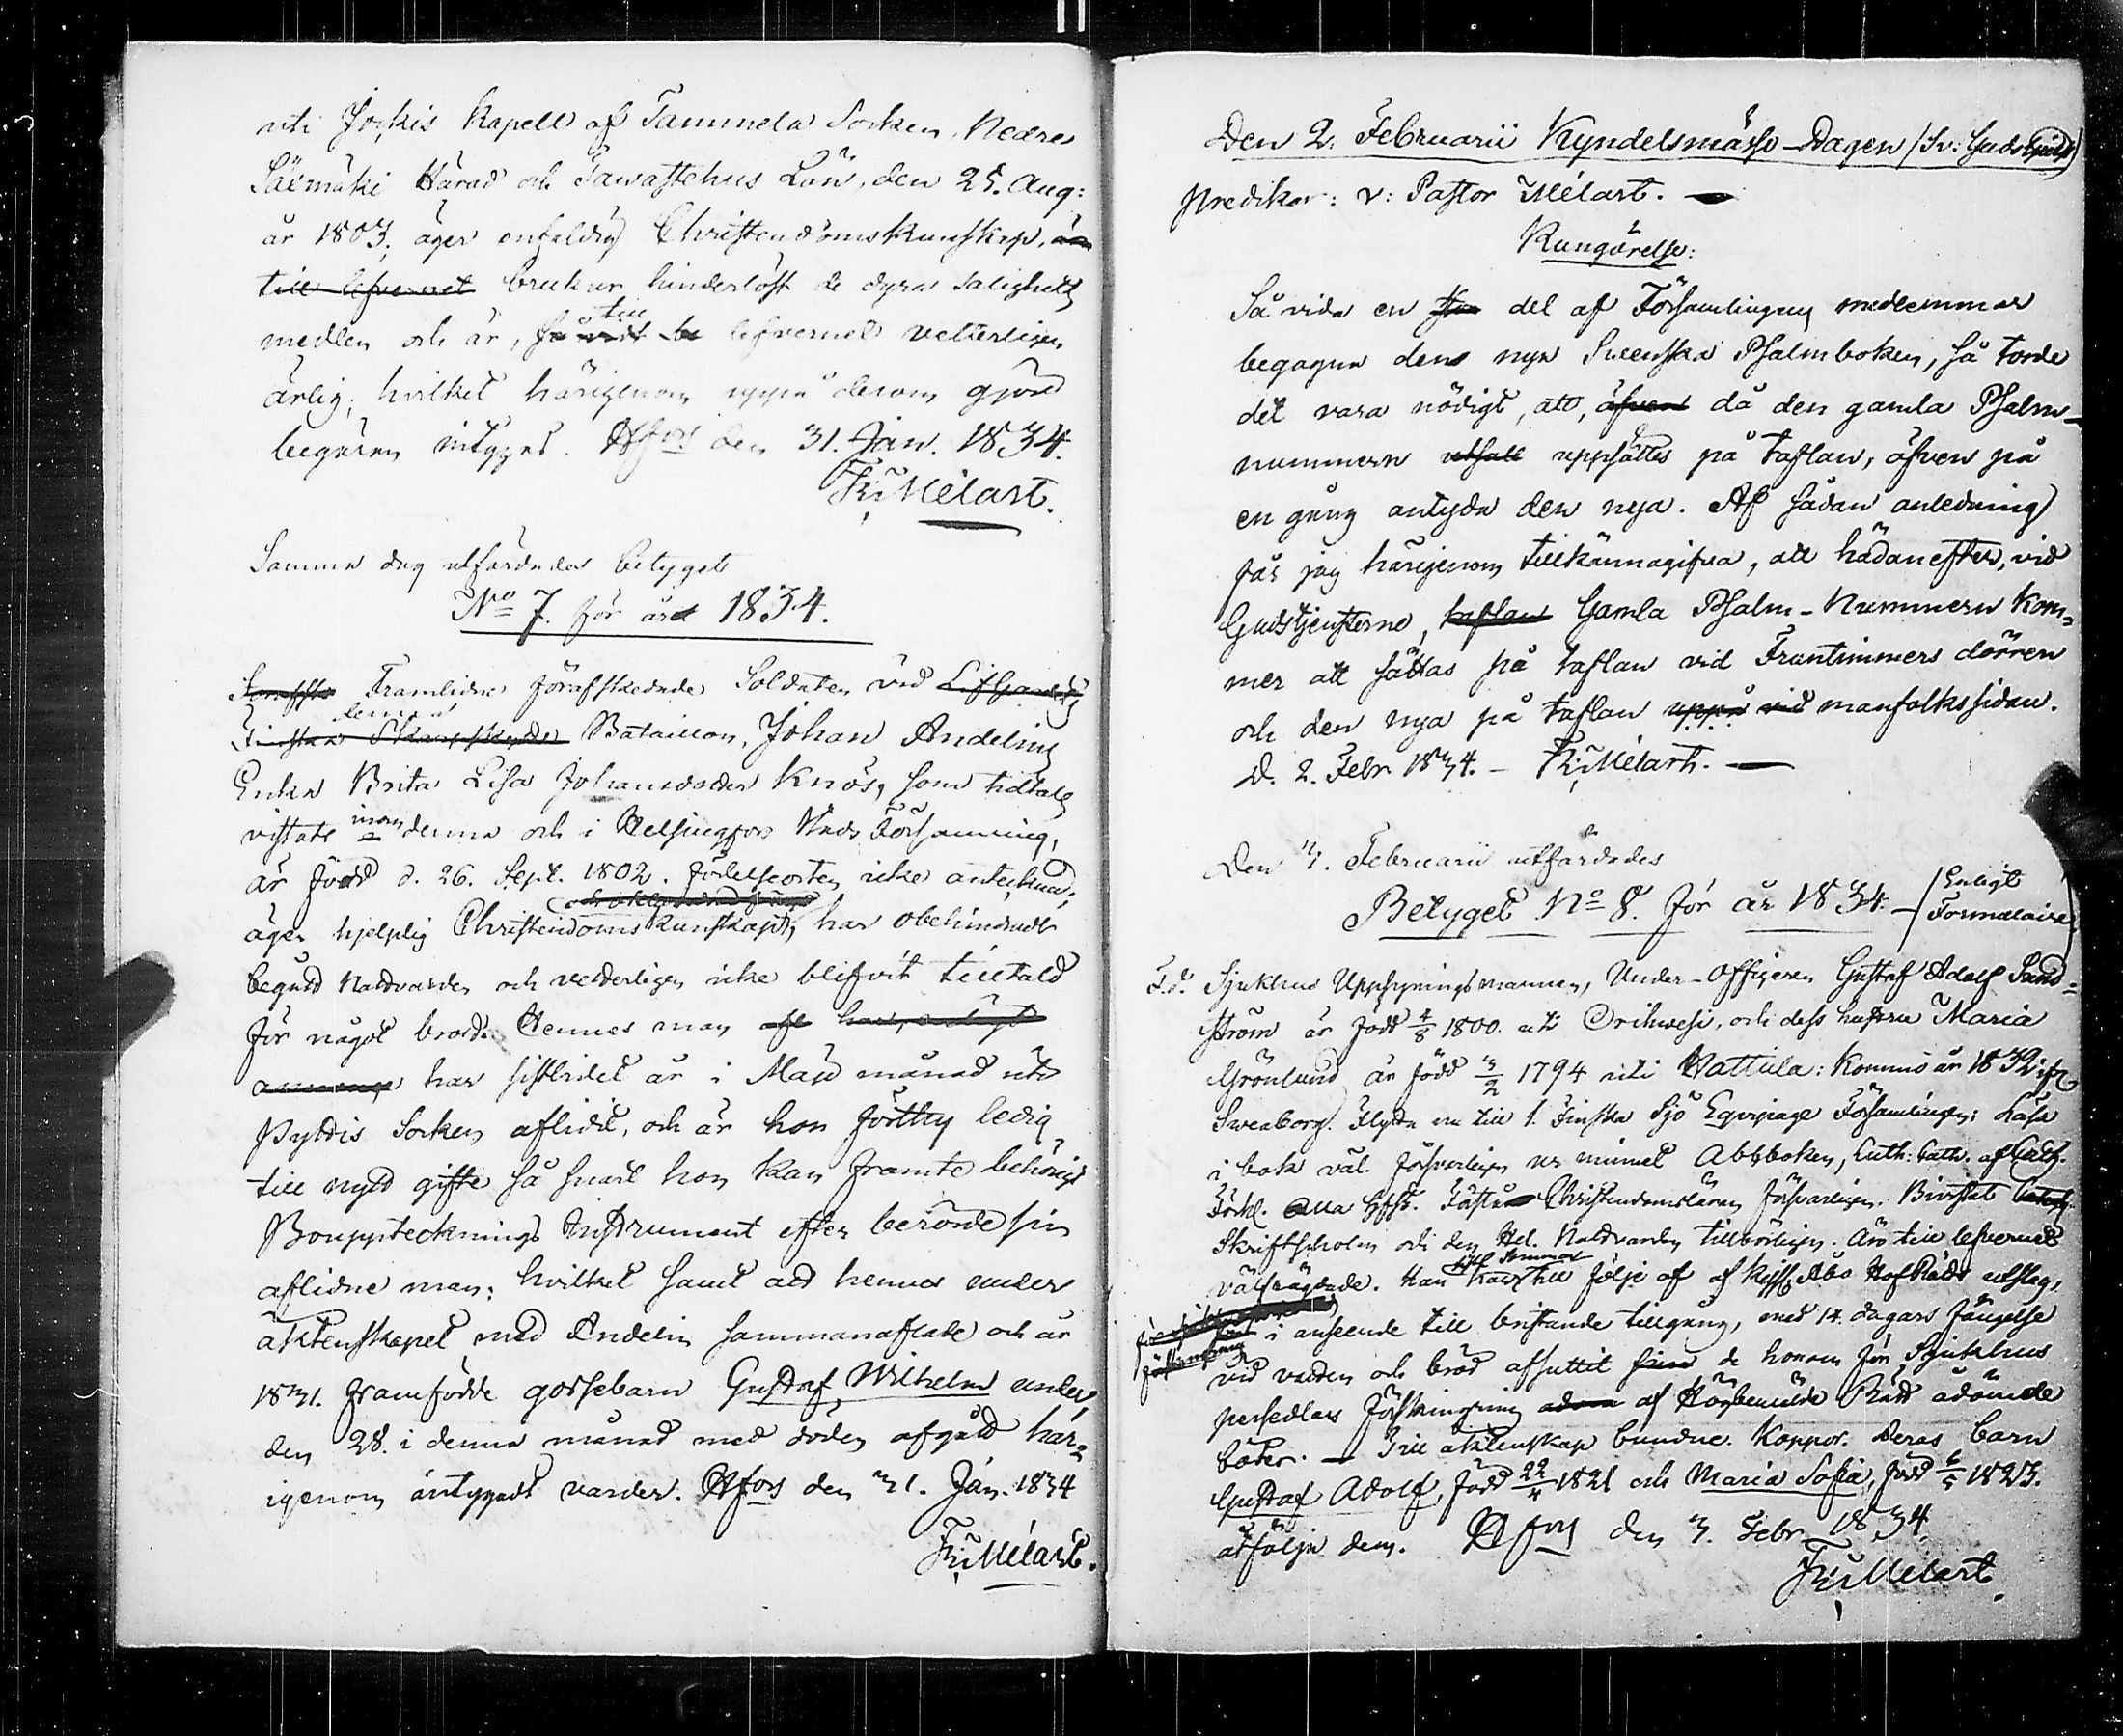 uti Jockis Kapell af Tammela Socken, Nedre
Säxmäki Härad och Tawastehus Län, den 25. Aug:
år 1803, äger enfaldig Christendomskunskap, är
till lefvernet brukar hinderlöst de dyra salighets
medlen och är, till lefvernet vetterligen
ärlig; hvilket härigenom uppå derom gjord
begäran intygas. Hfors den 31. Jan. 1834.
Fr: Melart.
Samma dag utfärdades betyget
No 7. för år 1834.
Framlidne förafskedade Soldaten vid LifGardets
Finska Skarpskytte denna Bataillon, Johan Andelins
Enka Brita Lisa Johansdotter Knös, som tidtals
vistats inom denna och i Helsingfors Stads Församling,
är född d. 26. Sept. 1802. födelseorten icke antecknad;
äger hjelplig Christendomskunskap, har obehindradt
begått Nattvarden och vetterligen icke blifvit tilltald
för något brott. Hennes man har, enligt
har sistlidet år i Maji månad uti
Pyttis Socken aflidit, och är hon förthy ledig
till nytt gifte så snart hon kan framte behörigt
BouppteckningsInstrument efter berörde sin
aflidne man; hvilket samt att hennes under
äktenskapet med Andelin sammanaflade och år
1831. framfödde gossebarn Gustaf Wilhelm under
den 28. i denna månad med döden afgått här=
igenom intygadt varder. Hfors den 31. Jan. 1834
Fr: Melart.
Den 2. Februarii Kyndelsmässo-Dagen /Sv: Gudstjenst/
predikar: v: Pastor Melart. —
Kungörelse:
Så vida en del af Församlingens medlemmar
begagna den nya Svenska Psalmboken, så torde
det vara nödigt, att, äfven då den gamla Psalm-
nummern uppsättes på taflan, äfven på
en gång antyda den nya. Af sådan anledning
får jag härigenom tillkännagifva, att hädanefter, vid
Gudstjensterne, taflan Gamla Psalm-Nummern kom=
mer att sättas på taflan vid Fruntimmers dörren
och den nya på taflan uppå vid manfolkssidan.
D. 2. Febr 1834. — Fr: Melart. —
Den 3. Februarii utfärdades
Betyget No 8. för år 1834. — /Enligt
Formulaire/
F.d. Sjukhus Uppsyningsmannen, Under-Officeren Gustaf Adolf Sand=
ström är född 4/8 1800. uti Orihwesi, och dess hustru Maria
Grönlund är född 3/2 1794 uti Hattula: kommo år 1832 ifr.
Sweaborg. Flytta nu till 1. Finska Sjö Equipage Församlingen; Läsa
i bok väl. försvarligen ur minnet Abbboken, Luth: Cath. af
Förkl. Förstå Christendomsläran försvarligen. Bivistat
Skriftskolan och den Hel. Nattvarden tillbörligen. Äro till lefvernet
välfrägdade. Han har till följe af af Kejs. Åbo HofRätts utslag,
i anseende till bristande tillgång, med 14. dagars fängelse
vid vatten och bröd afsuttit de honom för Sjukhus
persedlars förskingring af Högbemälde Rätt ådömde
böter. — Till äktenskap bundne. Koppor. Deras barn
Gustaf Adolf, född 22/4 1821 och Maria Sofia, född 6/5 1823.
åtfölja dem. Hfors den 3. Febr. 1834.
Fr: Melart.